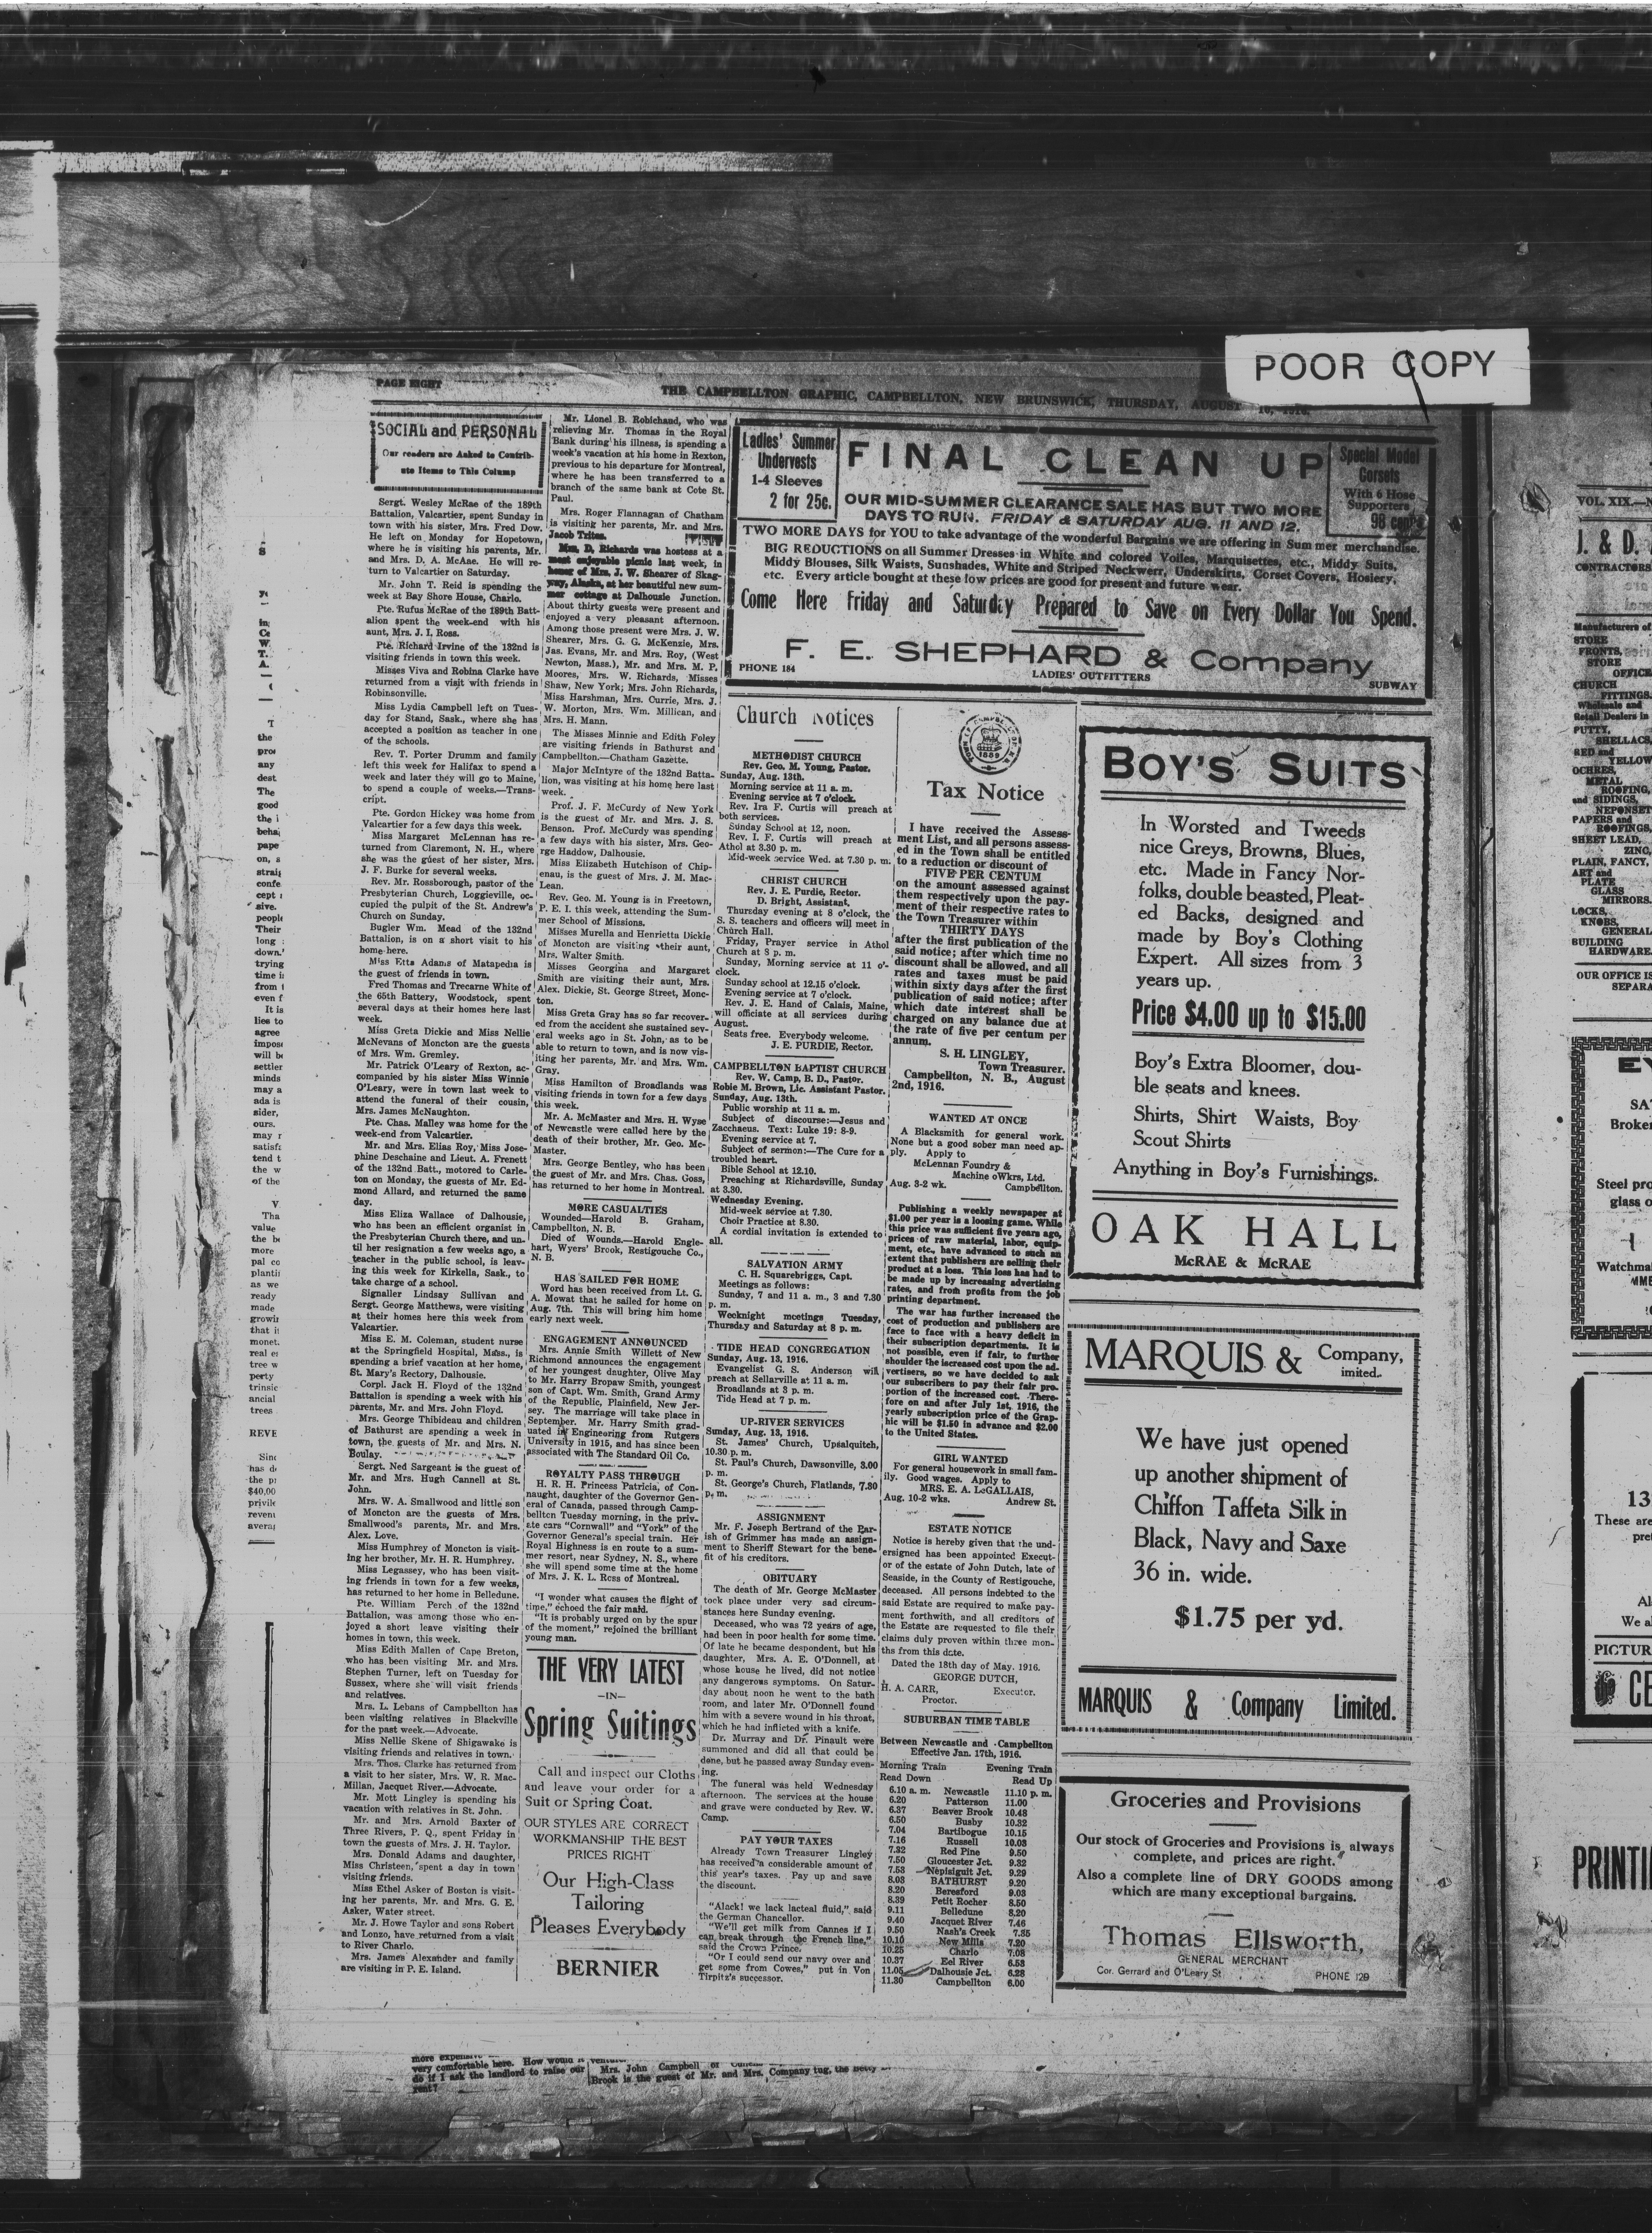 POOR COPY
PAGE EIGHT
THE CAMPBELLTON GRAPHIC, CAMPBELLTON, NEW BRUNSWICK, THURSDAY, AUGUST 10, 1916.
SOCIAL and PERSONAL
Our readers are Asked to Contrib-
ute Items to This Column
Sergt. Wesley McRae of the 189th
Battalion, Valcartier, spent Sunday in
town with his sister, Mrs. Fred Dow.
He left on Monday for Hopetown,
where he is visiting his parents, Mr.
and Mrs. D. A. McAae. He will re-
turn to Valcartier on Saturday.
Mr. John T. Reid is spending the
week at Bay Shore House, Charlo.
Pte. Rufus McRae of the 189th Batt-
alion spent the week-end with his
aunt, Mrs. J. I. Ross.
Pte. Richard Irvine of the 132nd is
visiting friends in town this week.
Misses Viva and Robina Clarke have
returned from a visit with friends in
Robinsonville.
Miss Lydia Campbell left on Tues-
day for Stand, Sask., where she has
accepted a position as teacher in one
of the schools.
Rev. T. Porter Drumm and family
left this week for Halifax to spend a
week and later they will go to Maine,
to spend a couple of weeks.—Trans-
cript.
Pte. Gordon Hickey was home from
Valcartier for a few days this week.
Miss Margaret McLennan has re-
turned from Claremont, N. H., where
she was the guest of her sister, Mrs.
J. F. Burke for several weeks.
Rev. Mr. Rossborough, pastor of the
Presbyterian Church, Loggieville, oc-
cupied the pulpit of the St. Andrew's
Church on Sunday.
Bugler Wm. Mead of the 132nd
Battalion, is on a short visit to his
home here.
Miss Etta Adams of Matapedia is
the guest of friends in town.
Fred Thomas and Trecarne White of
the 65th Battery, Woodstock, spent
several days at their homes here last
week.
Miss Greta Dickie and Miss Nellie
McNevans of Moncton are the guests
of Mrs. Wm. Gremley.
Mr. Patrick O'Leary of Rexton, ac-
companied by his sister Miss Winnie
O'Leary, were in town last week to
attend the funeral of their cousin,
Mrs. James McNaughton.
Pte. Chas. Malley was home for the
week-end from Valcartier.
Mr. and Mrs. Elias Roy, Miss Jose-
phine Deschaine and Lieut. A. Frenett
of the 132nd Batt., motored to Carle-
ton on Monday, the guests of Mr. Ed-
mond Allard, and returned the same
day.
Miss Eliza Wallace of Dalhousie,
who has been an efficient organist in
the Presbyterian Church there, and un-
til her resignation a few weeks ago, a
teacher in the public school, is leav-
ing this week for Kirkella, Sask., to
take charge of a school.
Signaller Lindsay Sullivan and
Sergt. George Matthews, were visiting
at their homes here this week from
Valcartier.
Miss E. M. Coleman, student nurse
at the Springfield Hospital, Mass., is
spending a brief vacation at her home,
St. Mary's Rectory, Dalhousie.
Corpl. Jack H. Floyd of the 132nd
Battalion is spending a week with his
parents, Mr. and Mrs. John Floyd.
Mrs. George Thibideau and children
of Bathurst are spending a week in
town, the guests of Mr. and Mrs. N.
Boulay.
Sergt. Ned Sargeant is the guest of
Mr. and Mrs. Hugh Cannell at St.
John.
Mrs. W. A. Smallwood and little son
of Moncton are the guests of Mrs.
Smallwood's parents, Mr. and Mrs.
Alex. Love.
Miss Humphrey of Moncton is visit-
ing her brother, Mr. H. R. Humphrey.
Miss Legassey, who has been visit-
ing friends in town for a few weeks,
has returned to her home in Belledune.
Pte. William Perch of the 132nd
Battalion, was among those who en-
joyed a short leave visiting their
homes in town, this week.
Miss Edith Mallen of Cape Breton,
who has been visiting Mr. and Mrs.
Stephen Turner, left on Tuesday for
Sussex, where she will visit friends
and relatives.
Mrs. L. Lebans of Campbellton has
been visiting relatives in Blackville
for the past week.—Advocate.
Miss Nellie Skene of Shigawake is
visiting friends and relatives in town.
Mrs. Thos. Clarke has returned from
a visit to her sister, Mrs. W. R. Mac-
Millan, Jacquet River.—Advocate.
Mr. Mott Lingley is spending his
vacation with relatives in St. John.
Mr. and Mrs. Arnold Baxter of
Three Rivers, P. Q., spent Friday in
town the guests of Mrs. J. H. Taylor.
Mrs. Donald Adams and daughter,
Miss Christeen, spent a day in town
visiting friends.
Miss Ethel Asker of Boston is visit-
ing her parents, Mr. and Mrs. G. E.
Asker, Water street.
Mr. J. Howe Taylor and sons Robert
and Lonzo, have returned from a visit
to River Charlo.
Mrs. James Alexander and family
are visiting in P. E. Island.
Mr. Lionel B. Robichaud, who was
relieving Mr. Thomas in the Royal
Bank during his illness, is spending a
week's vacation at his home in Rexton,
previous to his departure for Montreal,
where he has been transferred to a
branch of the same bank at Cote St.
Paul.
Mrs. Roger Flannagan of Chatham
is visiting her parents, Mr. and Mrs.
Jacob Trites.
Mrs. D. Richards was hostess at a
most enjoyable picnic last week, in
honor of Mrs. J. W. Shearer of Skag-
way, Alaska, at her beautiful new sum-
mer cottage at Dalhousie Junction.
About thirty guests were present and
enjoyed a very pleasant afternoon.
Among those present were Mrs. J. W.
Shearer, Mrs. G. G. McKenzie, Mrs.
Jas. Evans, Mr. and Mrs. Roy, (West
Newton, Mass.), Mr. and Mrs. M. P.
Moores, Mrs. W. Richards, Misses
Shaw, New York; Mrs. John Richards,
Miss Harshman, Mrs. Currie, Mrs. J.
W. Morton, Mrs. Wm. Millican, and
Mrs. H. Mann.
The Misses Minnie and Edith Foley
are visiting friends in Bathurst and
Campbellton.—Chatham Gazette.
Major McIntyre of the 132nd Batta-
lion, was visiting at his home here last
week.
Prof. J. F. McCurdy of New York
is the guest of Mr. and Mrs. J. S.
Benson. Prof. McCurdy was spending
a few days with his sister, Mrs. Geo-
rge Haddow, Dalhousie.
Miss Elizabeth Hutchison of Chip-
enau, is the guest of Mrs. J. M. Mac-
Lean.
Rev. Geo. M. Young is in Freetown,
P. E. I. this week, attending the Sum-
mer School of Missions.
Misses Murella and Henrietta Dickie
of Moncton are visiting their aunt,
Mrs. Walter Smith.
Misses Georgina and Margaret
Smith are visiting their aunt, Mrs.
Alex. Dickie, St. George Street, Monc-
ton.
Miss Greta Gray has so far recover-
ed from the accident she sustained sev-
eral weeks ago in St. John, as to be
able to return to town, and is now vis-
iting her parents, Mr. and Mrs. Wm.
Gray.
Miss Hamilton of Broadlands was
visiting friends in town for a few days
this week.
Mr. A. McMaster and Mrs. H. Wyse
of Newcastle were called here by the
death of their brother, Mr. Geo. Mc-
Master.
Mrs. George Bentley, who has been
the guest of Mr. and Mrs. Chas. Goss,
has returned to her home in Montreal.
MORE CASUALTIES
Wounded—Harold B. Graham,
Campbellton, N. B.
Died of Wounds.—Harold Engle-
hart, Wyers' Brook, Restigouche Co.,
N. B.
HAS SAILED FOR HOME
Word has been received from Lt. G.
A. Mowat that he sailed for home on
Aug. 7th. This will bring him home
early next week.
ENGAGEMENT ANNOUNCED
Mrs. Annie Smith Willett of New
Richmond announces the engagement
of her youngest daughter, Olive May
to Mr. Harry Bropaw Smith, youngest
son of Capt. Wm. Smith, Grand Army
of the Republic, Plainfield, New Jer-
sey. The marriage will take place in
September. Mr. Harry Smith grad-
uated in Engineering from Rutgers
University in 1915, and has since been
associated with The Standard Oil Co.
ROYALTY PASS THROUGH
H. R. H. Princess Patricia, of Con-
naught, daughter of the Governor Gen-
eral of Canada, passed through Camp-
bellton Tuesday morning, in the priv-
ate cars "Cornwall" and "York" of the
Governor General's special train. Her
Royal Highness is en route to a sum-
mer resort, near Sydney, N. S., where
she will spend some time at the home
of Mrs. J. K. L. Ross of Montreal.
"I wonder what causes the flight of
time," echoed the fair maid.
"It is probably urged on by the spur
of the moment," rejoined the brilliant
young man.
THE VERY LATEST
—IN—
Spring Suitings
Call and inspect our Cloths
and leave your order for a
Suit or Spring Coat.
OUR STYLES ARE CORRECT
WORKMANSHIP THE BEST
PRICES RIGHT
Our High-Class
Tailoring
Pleases Everybody
BERNIER
Ladies' Summer
Undervests
1-4 Sleeves
2 for 25c.
FINAL CLEAN UP
OUR MID-SUMMER CLEARANCE SALE HAS BUT TWO MORE
DAYS TO RUN. FRIDAY & SATURDAY AUG. 11 AND 12.
Special Model
Corsets
With 6 Hose
Supporters
98 cents
TWO MORE DAYS for YOU to take advantage of the wonderful Bargains we are offering in Summer merchandise.
BIG REDUCTIONS on all Summer Dresses in White and colored Voiles, Marquisettes, etc., Middy Suits,
Middy Blouses, Silk Waists, Sunshades, White and Striped Neckwerr, Underskirts, Corset Covers, Hosiery,
etc. Every article bought at these low prices are good for present and future wear.
Come Here Friday and Saturday Prepared to Save on Every Dollar You Spend.
F. E. SHEPHARD & Company
PHONE 184
LADIES' OUTFITTERS
SUBWAY
Church Notices
METHODIST CHURCH
Rev. Geo. M. Young, Pastor.
Sunday, Aug. 13th.
Morning service at 11 a. m.
Evening service at 7 o'clock.
Rev. Ira F. Curtis will preach at
both services.
Sunday School at 12, noon.
Rev. I. F. Curtis will preach at
Athol at 3.30 p. m.
Mid-week service Wed. at 7.30 p. m.
CHRIST CHURCH
Rev. J. E. Purdie, Rector.
D. Bright, Assistant.
Thursday evening at 8 o'clock, the
S. S. teachers and officers will meet in
Church Hall.
Friday, Prayer service in Athol
Church at 8 p. m.
Sunday, Morning service at 11 o'-
clock.
Sunday school at 12.15 o'clock.
Evening service at 7 o'clock.
Rev. J. E. Hand of Calais, Maine,
will officiate at all services during
August.
Seats free. Everybody welcome.
J. E. PURDIE, Rector.
CAMPBELLTON BAPTIST CHURCH
Rev. W. Camp, B. D., Pastor.
Robie M. Brown, Lic. Assistant Pastor.
Sunday, Aug. 13th.
Public worship at 11 a. m.
Subject of discourse:—Jesus and
Zacchaeus. Text: Luke 19: 8-9.
Evening service at 7.
Subject of sermon:—The Cure for a
troubled heart.
Bible School at 12.10.
Preaching at Richardsville, Sunday
at 3.30.
Wednesday Evening.
Mid-week service at 7.30.
Choir Practice at 8.30.
A cordial invitation is extended to
all.
SALVATION ARMY
C. H. Squarebriggs, Capt.
Meetings as follows:
Sunday, 7 and 11 a. m., 3 and 7.30
p. m.
Weeknight meetings Tuesday,
Thursday and Saturday at 8 p. m.
TIDE HEAD CONGREGATION
Sunday, Aug. 13, 1916.
Evangelist G. S. Anderson will
preach at Sellarville at 11 a. m.
Broadlands at 3 p. m.
Tide Head at 7 p. m.
UP-RIVER SERVICES
Sunday, Aug. 13, 1916.
St. James' Church, Upsalquitch,
10.30 p. m.
St. Paul's Church, Dawsonville, 3.00
p. m.
St. George's Church, Flatlands, 7.30
p. m.
ASSIGNMENT
Mr. F. Joseph Bertrand of the Par-
ish of Grimmer has made an assign-
ment to Sheriff Stewart for the bene-
fit of his creditors.
OBITUARY
The death of Mr. George McMaster
tock place under very sad circum-
stances here Sunday evening.
Deceased, who was 72 years of age,
had been in poor health for some time.
Of late he became despondent, but his
daughter, Mrs. A. E. O'Donnell, at
whose house he lived, did not notice
any dangerous symptoms. On Satur-
day about noon he went to the bath
room, and later Mr. O'Donnell found
him with a severe wound in his throat,
which he had inflicted with a knife.
Dr. Murray and Dr. Pinault were
summoned and did all that could be
done, but he passed away Sunday even-
ing.
The funeral was held Wednesday
afternoon. The services at the house
and grave were conducted by Rev. W.
Camp.
PAY YOUR TAXES
Already Town Treasurer Lingley
has received a considerable amount of
this year's taxes. Pay up and save
the discount.
"Alack! we lack lacteal fluid," said
the German Chancellor.
"We'll get milk from Cannes if I
can break through the French line,"
said the Crown Prince.
"Or I could send our navy over and
get some from Cowes," put in Von
Tirpitz's successor.
Tax Notice
I have received the Assess-
ment List, and all persons assess-
ed in the Town shall be entitled
to a reduction or discount of
FIVE PER CENTUM
on the amount assessed against
them respectively upon the pay-
ment of their respective rates to
the Town Treasurer within
THIRTY DAYS
after the first publication of the
said notice; after which time no
discount shall be allowed, and all
rates and taxes must be paid
within sixty days after the first
publication of said notice; after
which date interest shall be
charged on any balance due at
the rate of five per centum per
annum.
S. H. LINGLEY,
Town Treasurer.
Campbellton, N. B., August
2nd, 1916.
WANTED AT ONCE
A Blacksmith for general work.
None but a good sober man need ap-
ply. Apply to
McLennan Foundry &
Machine oWrks, Ltd.
Aug. 3-2 wk. Campbellton.
Publishing a weekly newspaper at
$1.00 per year is a loosing game. While
this price was sufficient five years ago,
prices of raw material, labor, equip-
ment, etc., have advanced to such an
extent that publishers are selling their
product at a loss. This loss has had to
be made up by increasing advertising
rates, and from profits from the job
printing department.
The war has further increased the
cost of production and publishers are
face to face with a heavy deficit in
their subscription departments. It is
not possible, even if fair, to further
shoulder the increased cost upon the ad-
vertisers, so we have decided to ask
our subscribers to pay their fair pro-
portion of the increased cost. There-
fore on and after July 1st, 1916, the
yearly subscription price of the Grap-
hic will be $1.50 in advance and $2.00
to the United States.
GIRL WANTED
For general housework in small fam-
ily. Good wages. Apply to
MRS. E. A. LeGALLAIS,
Aug. 10-2 wks. Andrew St.
ESTATE NOTICE
Notice is hereby given that the und-
ersigned has been appointed Execut-
or of the estate of John Dutch, late of
Seaside, in the County of Restigouche,
deceased. All persons indebted to the
said Estate are required to make pay-
ment forthwith, and all creditors of
the Estate are requested to file their
claims duly proven within three mon-
ths from this date.
Dated the 18th day of May. 1916.
GEORGE DUTCH,
H. A. CARR, Executor.
Proctor.
SUBURBAN TIME TABLE
Between Newcastle and Campbellton
Effective Jan. 17th, 1916.
Morning Train Evening Train
Read Down Read Up
6.10 a. m. Newcastle 11.10 p. m.
6.20 Patterson 11.00
6.37 Beaver Brook 10.48
6.50 Busby 10.32
7.04 Bartibogue 10.15
7.16 Russell 10.03
7.32 Red Pine 9.50
7.50 Gloucester Jct. 9.32
7.53 Nepisiguit Jct. 9.29
8.03 BATHURST 9.20
8.20 Beresford 9.03
8.39 Petit Rocher 8.50
9.11 Belledune 8.20
9.40 Jacquet River 7.46
9.50 Nash's Creek 7.35
10.10 New Mills 7.20
10.25 Charlo 7.08
10.37 Eel River 6.53
11.05 Dalhousie Jct. 6.28
11.30 Campbellton 6.00
BOY'S SUITS
In Worsted and Tweeds
nice Greys, Browns, Blues,
etc. Made in Fancy Nor-
folks, double beasted, Pleat-
ed Backs, designed and
made by Boy's Clothing
Expert. All sizes from 3
years up.
Price $4.00 up to $15.00
Boy's Extra Bloomer, dou-
ble seats and knees.
Shirts, Shirt Waists, Boy
Scout Shirts
Anything in Boy's Furnishings.
OAK HALL
McRAE & McRAE
MARQUIS & Company,
imited.
We have just opened
up another shipment of
Chiffon Taffeta Silk in
Black, Navy and Saxe
36 in. wide.
$1.75 per yd.
MARQUIS & Company Limited.
Groceries and Provisions
Our stock of Groceries and Provisions is always
complete, and prices are right.
Also a complete line of DRY GOODS among
which are many exceptional bargains.
Thomas Ellsworth,
GENERAL MERCHANT
Cor. Gerrard and O'Leary St
PHONE 129
very comfortable here. How would it
do if I ask the landlord to raise our
rent?
Mrs. John Campbell of
Brook is the guest of Mr. and Mrs.
Company tug, the Betty
VOL. XIX.
J. & D.
CONTRACTORS
Manufacturers of
STORE
FRONTS,
STORE
OFFICE
CHURCH
FITTINGS.
Wholesale and
Retail Dealers in
PUTTY,
SHELLACS,
RED and
YELLOW
OCHRES,
METAL
ROOFING,
and SIDINGS,
NEPONSET
PAPERS and
ROOFINGS,
SHEET LEAD,
ZINC,
PLAIN, FANCY,
ART and
PLATE
GLASS
MIRRORS.
LOCKS,
KNOBS,
GENERAL
BUILDING
HARDWARE.
OUR OFFICE IS
SEPARA